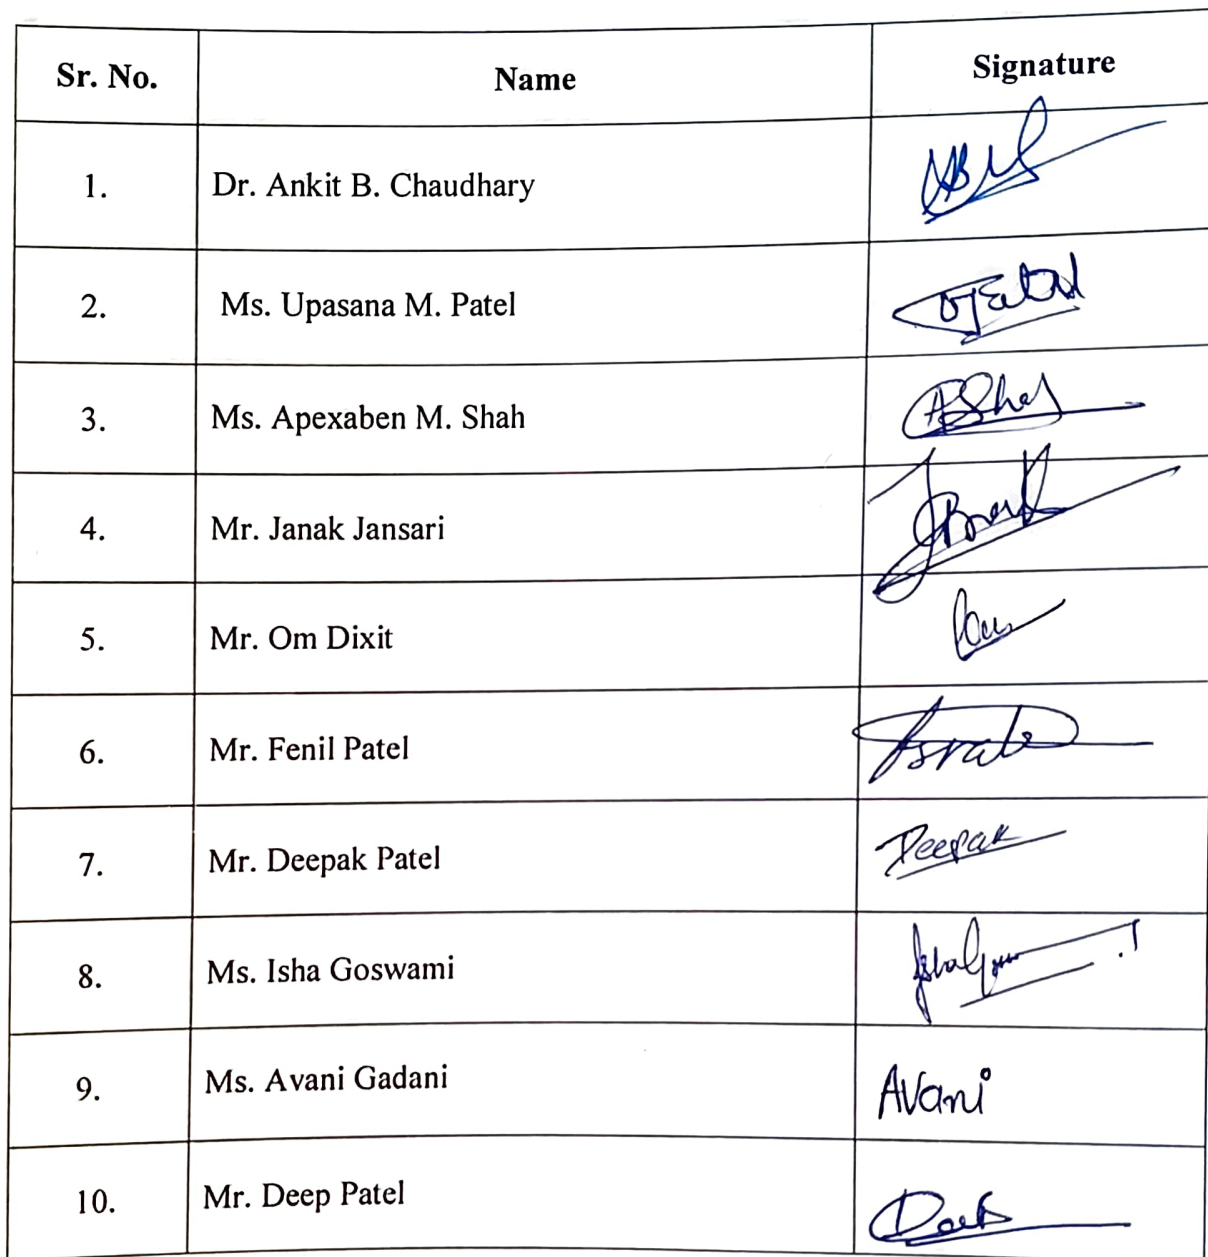 Sr. No. Name Signature
1. Dr. Ankit B. Chaudhary
2. Ms. Upasana M. Patel
3. Ms. Apexaben M. Shah AShah
4. Mr. Janak Jansari
5. Mr. Om Dixit
6. Mr. Fenil Patel
7. Mr. Deepak Patel Deepak
8. Ms. Isha Goswami
9. Ms. Avani Gadani Avani
10. Mr. Deep Patel